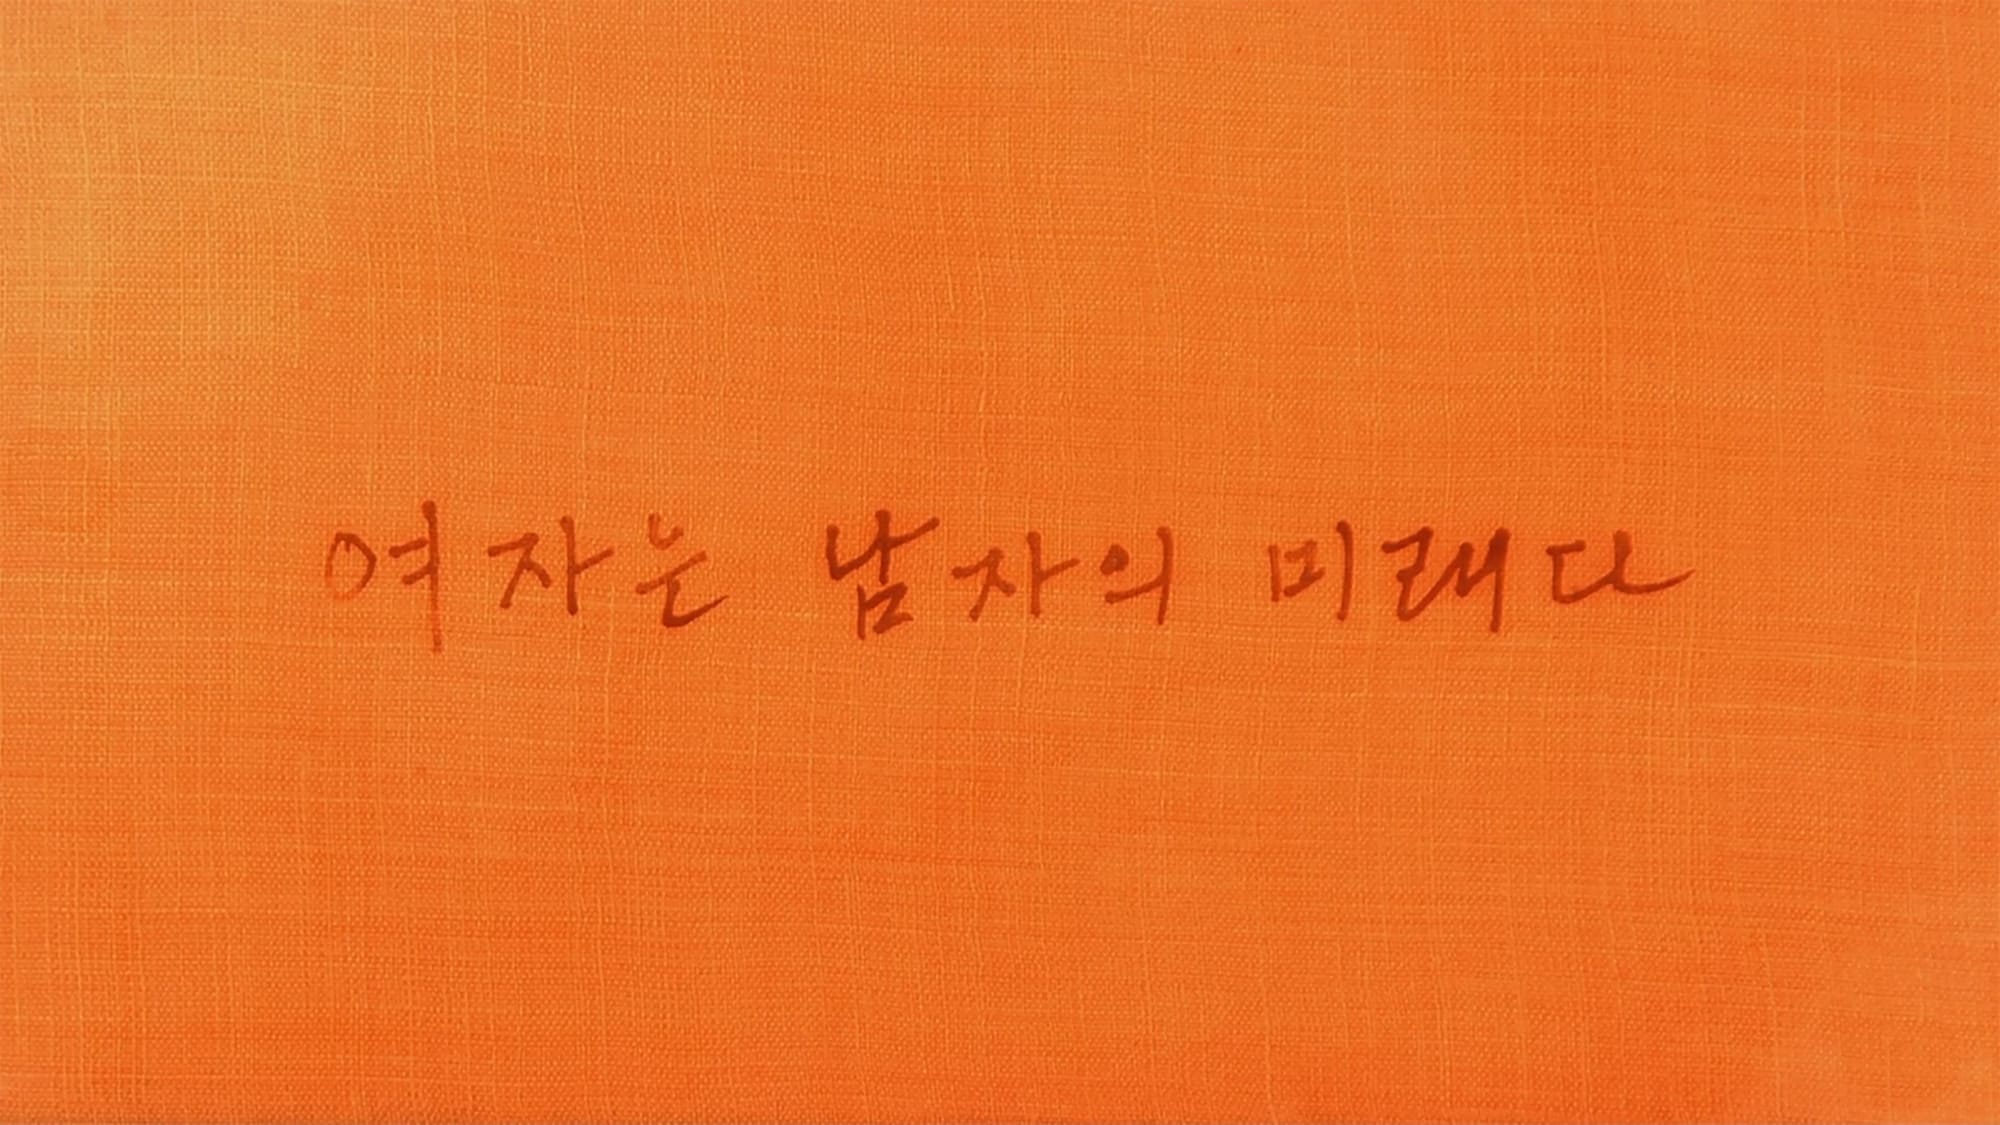 여자는 남자의 미래다